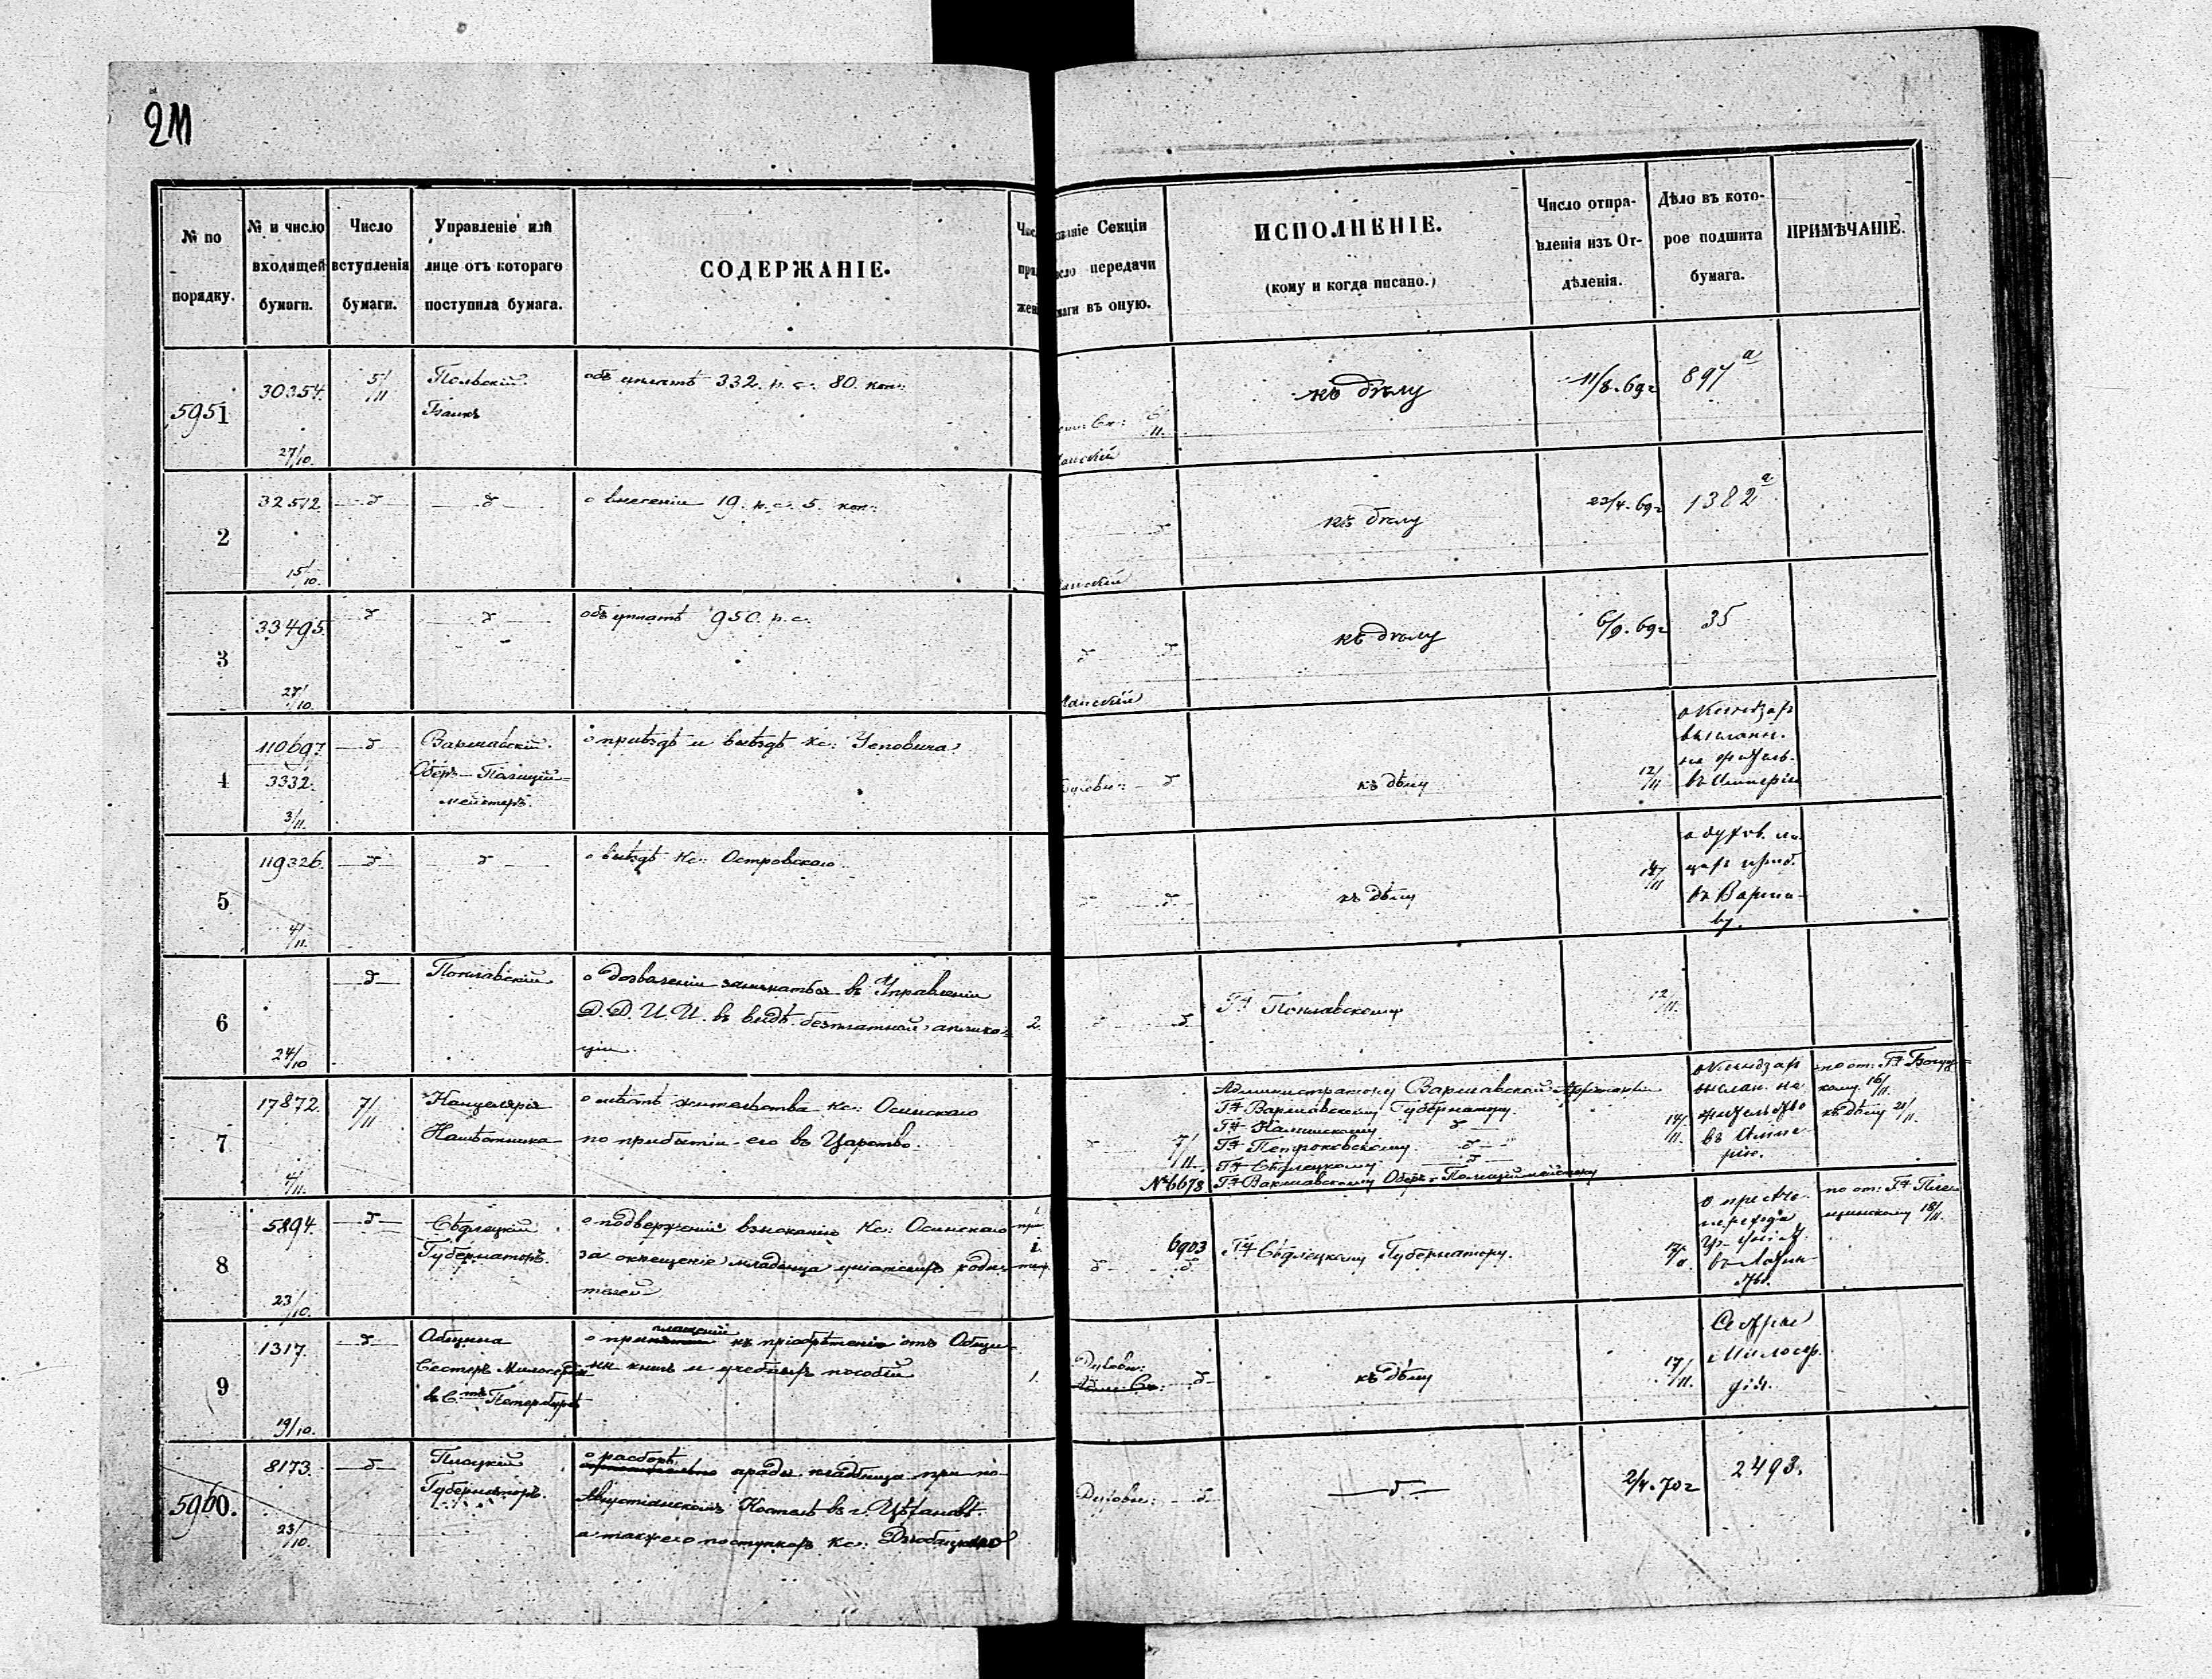 № по порядку.
№ и число входящей бумаги.
Число вступленія бумаги.
Управленіе или лице отъ котораго поступила бумага.
СОДЕРЖАНІЕ.
Секціи
передачи
въ оную.
ИСПОЛНЕНІЕ.
(кому и когда писано.)
Число отправленія изъ Отдѣленія.
Дѣло въ которое подшита бумага.
ПРИМѢЧАНІЕ.
5951
30354.
27/10.
5/11
Польскій
Банкъ
объ уплатѣ 332. р. с. 80. коп:
къ дѣлу
11/8. 69г
897 а
2
32512
15/10.
о внесеніи 19. р. с. 5. коп:
къ дѣлу
23/4. 69г
1382 а
3
33495.
27/10.
объ уплатѣ 950. р. с.
къ дѣлу
6/9. 69г
35
4
110697.
3332.
3/11.
Варшавскій
Оберъ-Полицій=
мейстеръ.
о пріѣздѣ и выѣздѣ Кс:
къ дѣлу
12/11
о Ксендзах
высланн.
на житель.
въ Имперію
5
119326.
4/11.
о выѣздѣ Кс: Островскаго
къ дѣлу
14/11
о духов. ли
цах приб.
въ Варша-
ву.
6
24/10
Поплавскій
о дозволеніи заниматься въ Управленіи
Д. Д. И. И. въ видѣ безплатной аплика=
ціи.
2.
Гну Поплавскому
12/11.
7
17872.
4/11.
7/11
Канцелярія
Намѣстника
о мѣстѣ жительства Кс: Осинскаго
по прибытіи его въ Царство.
7/11.
№ 6678
Администратору Варшавской Архіепархіи
Гну Варшавскому Губернатору.
Гну Калишскому
Гну Петроковскому
Гну Сѣдлецкому
Гну Варшавскому Оберъ-Полиціймейстеру
14/11.
о Ксендзах
выслан. на
жительство
въ Импе
рію.
по от: Гну
кому 16/11.
къ дѣлу 21/11.
8
5894.
23/10.
Сѣдлецкій
Губернаторъ.
о подверженіи взысканію Кс: Осинскаго
за окрещеніе младенца уніатскихъ роди=
телей
6903
Гну Сѣдлецкому Губернатору.
17/11.
перехода
по от: Гну
18/11.
9
1317.
19/10.
Община
Сестеръ Милосердія
въ С. Петербургѣ
къ пріобрѣтенію отъ Общи=
ны книгъ и учебныхъ пособій
1.
Духовн:
къ дѣлу
17/11.
Сестры
Милосер.
дія.
5960.
8173.
23/10.
Плоцкій
Губернаторъ.
о разборѣ
ограды кладбища при по-
Августіанскомъ Костелѣ въ г. Цѣхановѣ.
а также о поступкахъ Кс:
Духовн:
2/4. 70г
2493.